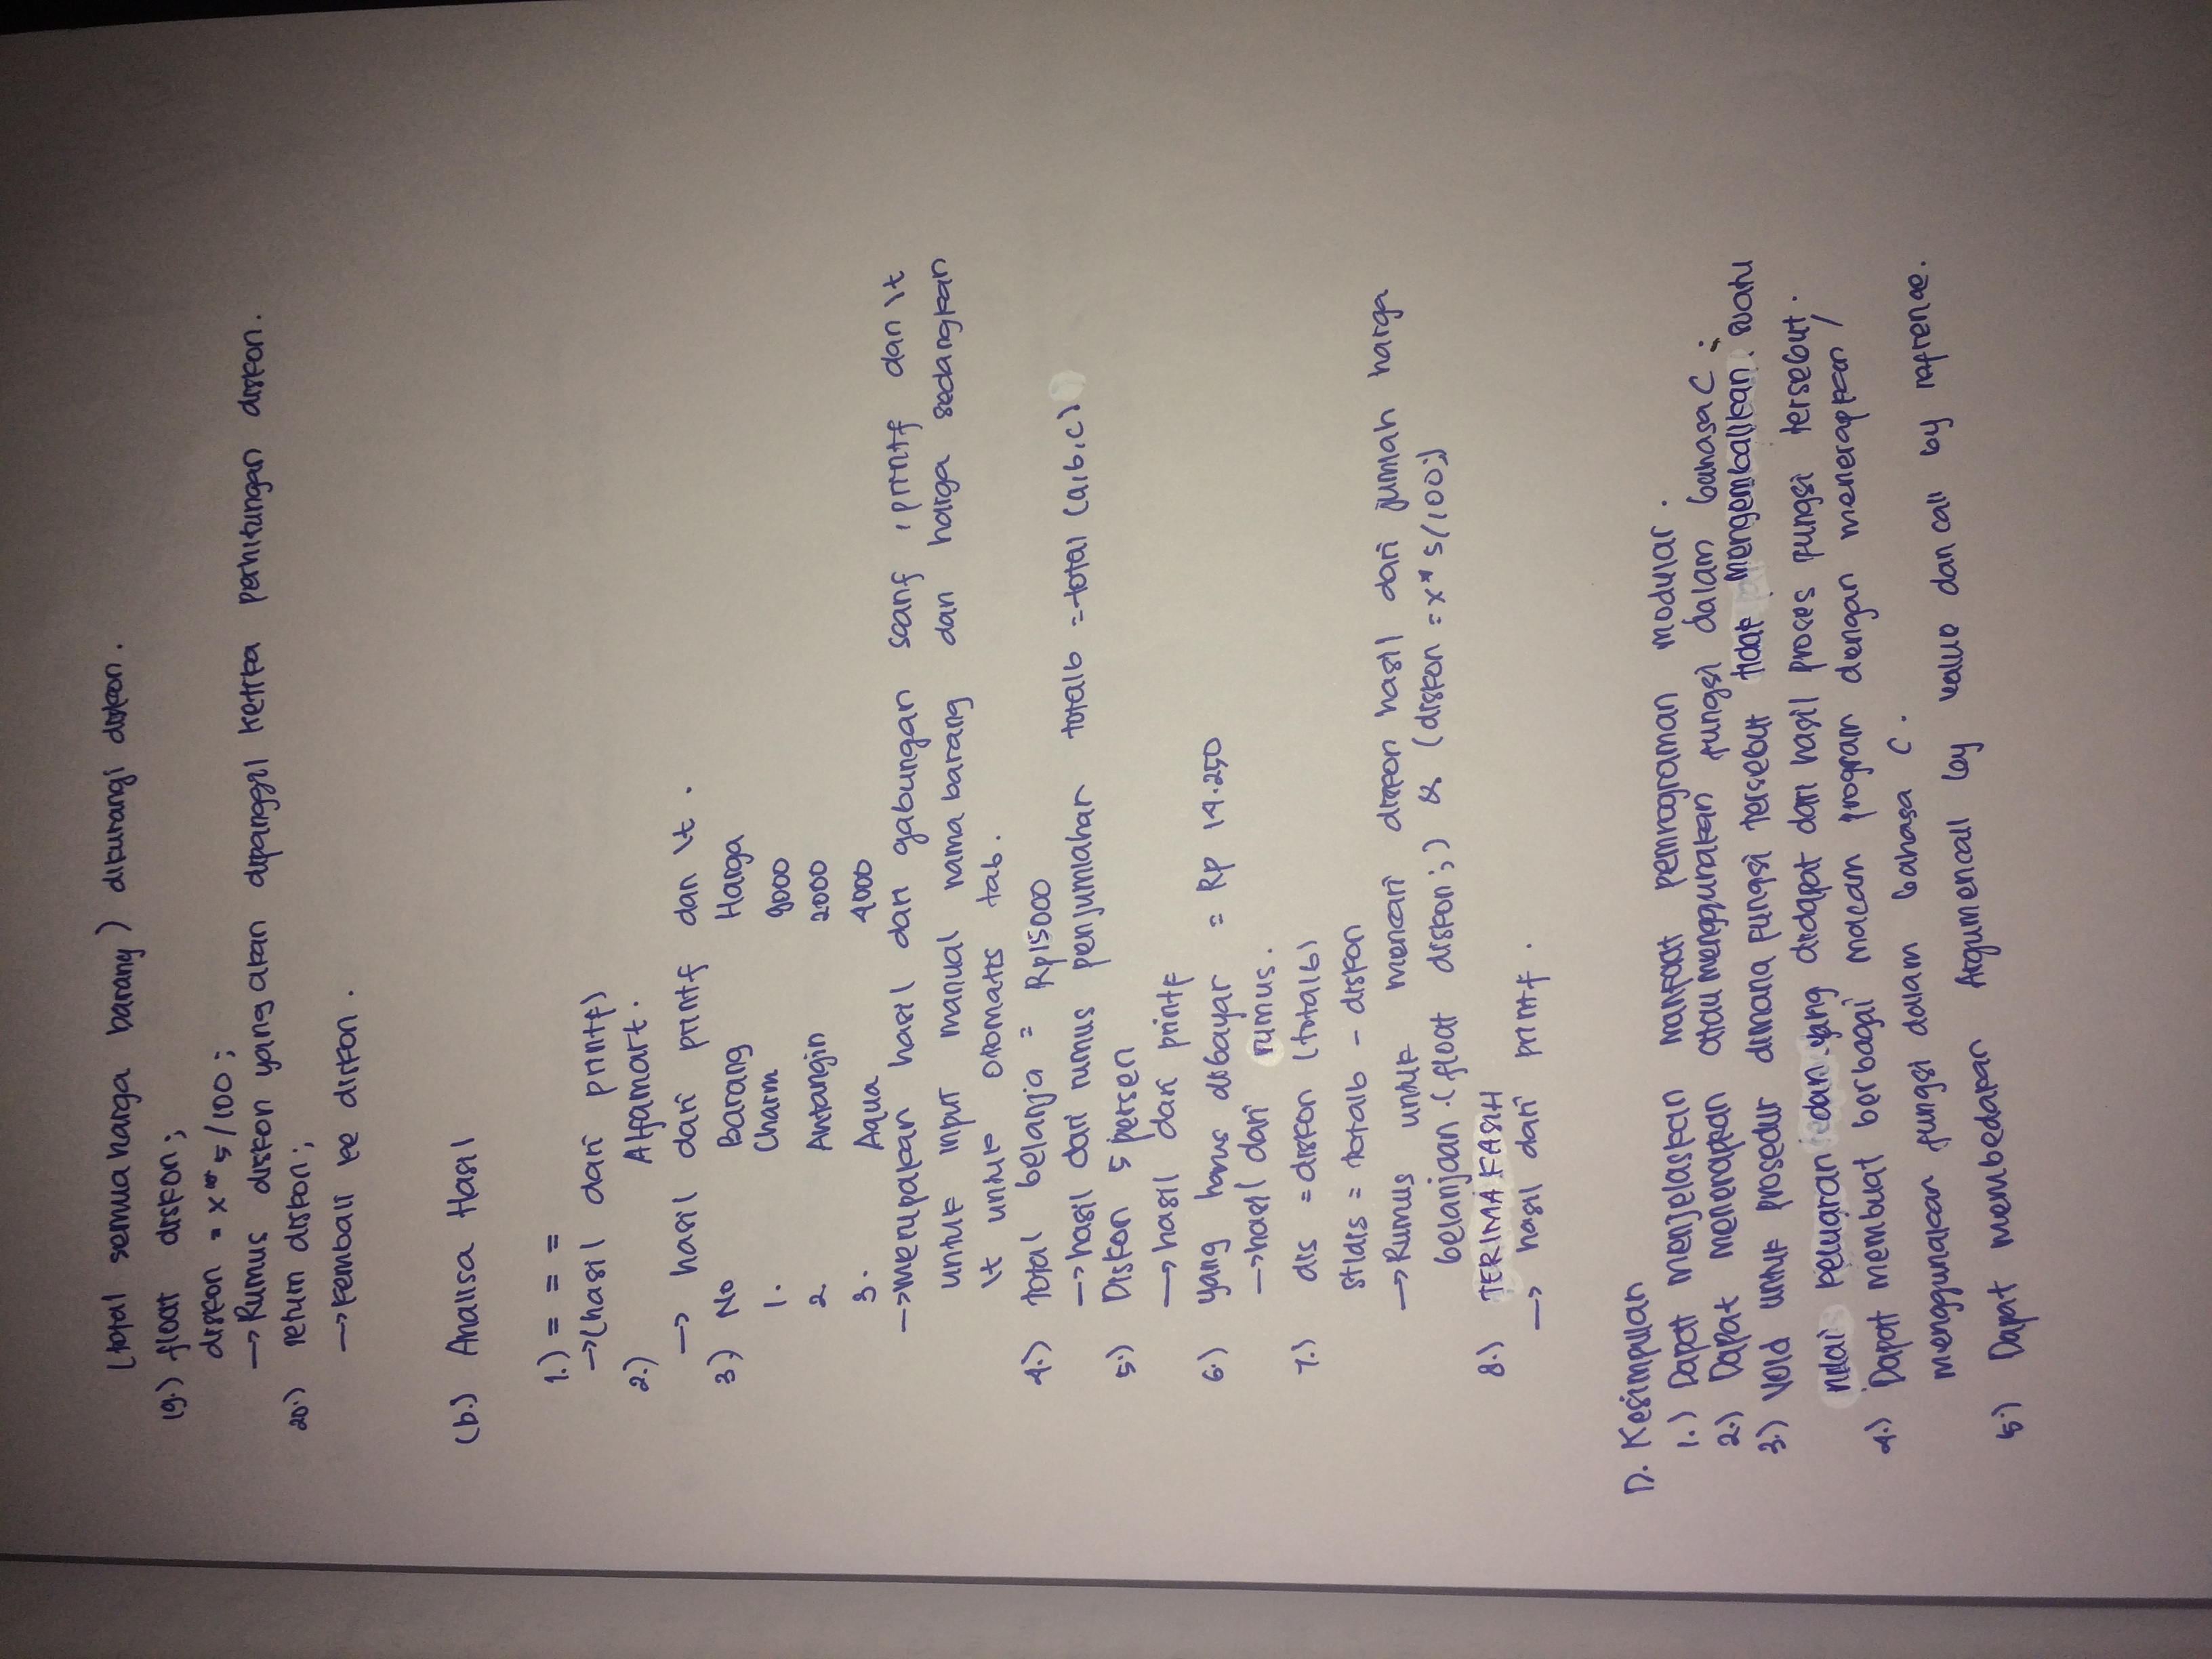 (total semua harga barang) dikurangi diskon.
19.) float diskon;
diskon = x * 5/100;
→ Rumus diskon yang akan dipanggil ketika perhitungan diskon.
20.) return diskon;
→ kembali ke diskon.
(b.) Analisa Hasil
1.) = = = =
→ (hasil dari printf)
2.) Alfamart.
→ hasil dari printf dan \t.
3.) No Barang Harga
1. Charm 9000
2. Antangin 2000
3. Aqua 4000
→ merupakan hasil dari gabungan scanf, printf dan \t
untuk input manual nama barang dan harga sedangkan
\t untuk otomatis tab.
4.) Total belanja = Rp15000
→ hasil dari rumus penjumlahan totalb = total (a,b,c)
5.) Diskon 5 persen
→ hasil dari printf
6.) yang harus dibayar = Rp 14.250
→ hasil dari rumus.
7.) dis = diskon (totalb)
stldis = totalb - diskon
→ Rumus untuk mencari diskon hasil dari jumlah harga
belanjaan. (float diskon;) & (diskon = x * 5/100;)
8.) TERIMA KASIH
→ hasil dari printf.
D. Kesimpulan
1.) Dapat menjelaskan manfaat pemrograman modular.
2.) Dapat menerapkan atau menggunakan fungsi dalam bahasa C.
3.) Void untuk prosedur dimana fungsi tersebut tidak mengembalikan suatu
nilai keluaran yang didapat dari hasil proses fungsi tersebut.
4.) Dapat membuat berbagai macam program dengan menerapkan/
menggunakan fungsi dalam bahasa C.
5.) Dapat membedakan Argumencall by value dan call by refrence.